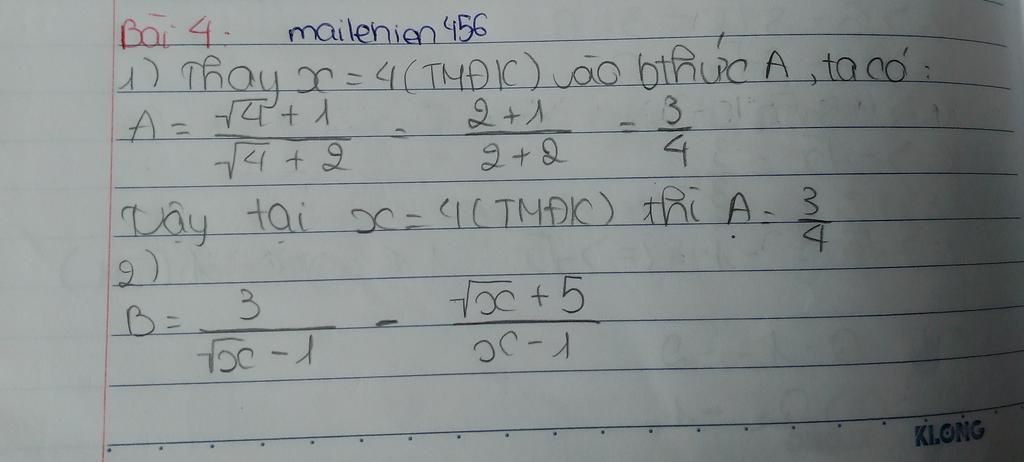 Bài 4. mailenien456
1) Thay x = 4 (TMĐK) vào bthức A, ta có:
A = (√4 + 1)/(√4 + 2) = (2 + 1)/(2 + 2) = 3/4
Vậy tại x = 4 (TMĐK) thì A = 3/4
2)
B = 3/(√x - 1) - (√x + 5)/(x - 1)
KLONG